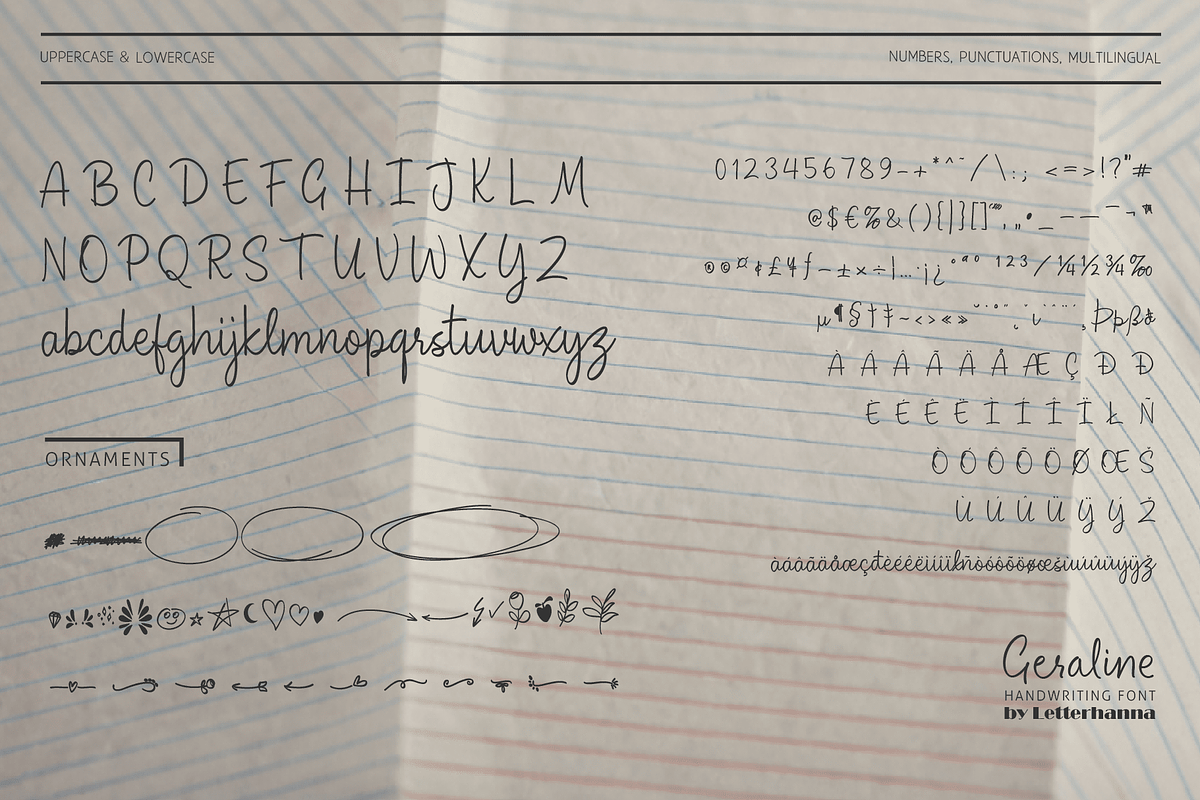 UPPERCASE & LOWERCASE
NUMBERS, PUNCTUATIONS, MULTILINGUAL
A B C D E F G H I J K L M
N O P Q R S T U V W X Y Z
abcdefghijklmnopqrstuvwxyz
0 1 2 3 4 5 6 7 8 9 - + * ^ ~ / \ : ; < = > ! ? " #
@ $ € % & ( ) { | } [ ]
® © ¤ ¢ £ ¥ ƒ − ± × ÷ | … · ¡ ¿ ° ª º ¹ ² ³ ⁄ ¼ ½ ¾ ‰
µ ¶ § † ‡ ~ ‹ › « » Þ þ ß
À Á Â Ã Ä Å Æ Ç Ð Đ
È É Ê Ë Ì Í Î Ï Ł Ñ
Ò Ó Ô Õ Ö Ø Œ Š
Ù Ú Û Ü Ÿ Ý Ž
àáâãäåæçđèéêëìíîïłñòóôõöøœšùúûüýÿž
ORNAMENTS
Geraline
HANDWRITING FONT
by Letterhanna